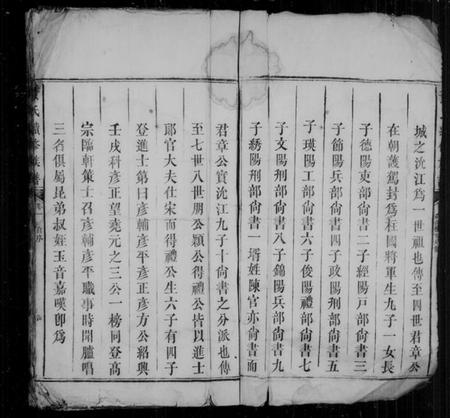 城之沇江爲一世祖也傳至四世君章公
在朝護駕封爲柱國將軍生九子一女長
子德陽吏部尚書二子經陽戸部尚書三
子節陽兵部尚書四子政陽刑部尚書五
子瑛陽工部尚書六子俊陽禮部尚書七
子文陽刑部尚書八子錦陽兵部尚書九
子繡陽刑部尚書 壻姓陳官亦尚書而
君章公實沇江九子十尚書之分派也傳
至七世八世朋公穎公得禮公皆以進士
郎官大夫仕宋而得禮公生六子有四子
登進士第曰彥輔彥平彥正彥方公紹興
壬戌科彥正望堯元之三公一榜同登高
宗臨軒策士召彥輔彥平職事時聞臚唱
三名俱屬昆弟叔姪玉音嘉嘆卽爲
氏續修族譜